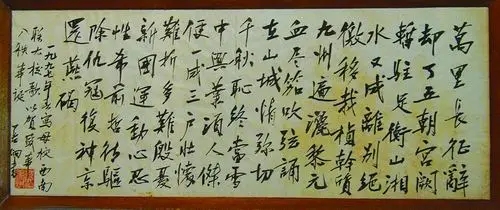 萬里長征辭
却了五朝宮闕
暫駐足衡山湘
水又成離别絕
徼移栽楨榦質
九州遍灑黎元
血盡笳吹弦誦
在山城情弥切
千秋恥終當雪
中興業須人傑
便一成三户壯懷
難折多難殷憂
新國運動心忍
性希前哲待驅
除仇寇復神京
還燕碣
一九九七年寫母校西南
聯大校歌以賀
八秩華誕